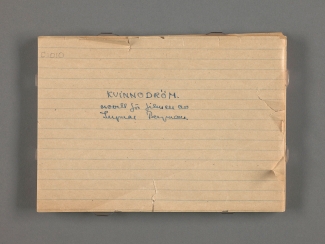 KVINNODRÖM.
novell för filmen av
Ingmar Bergman